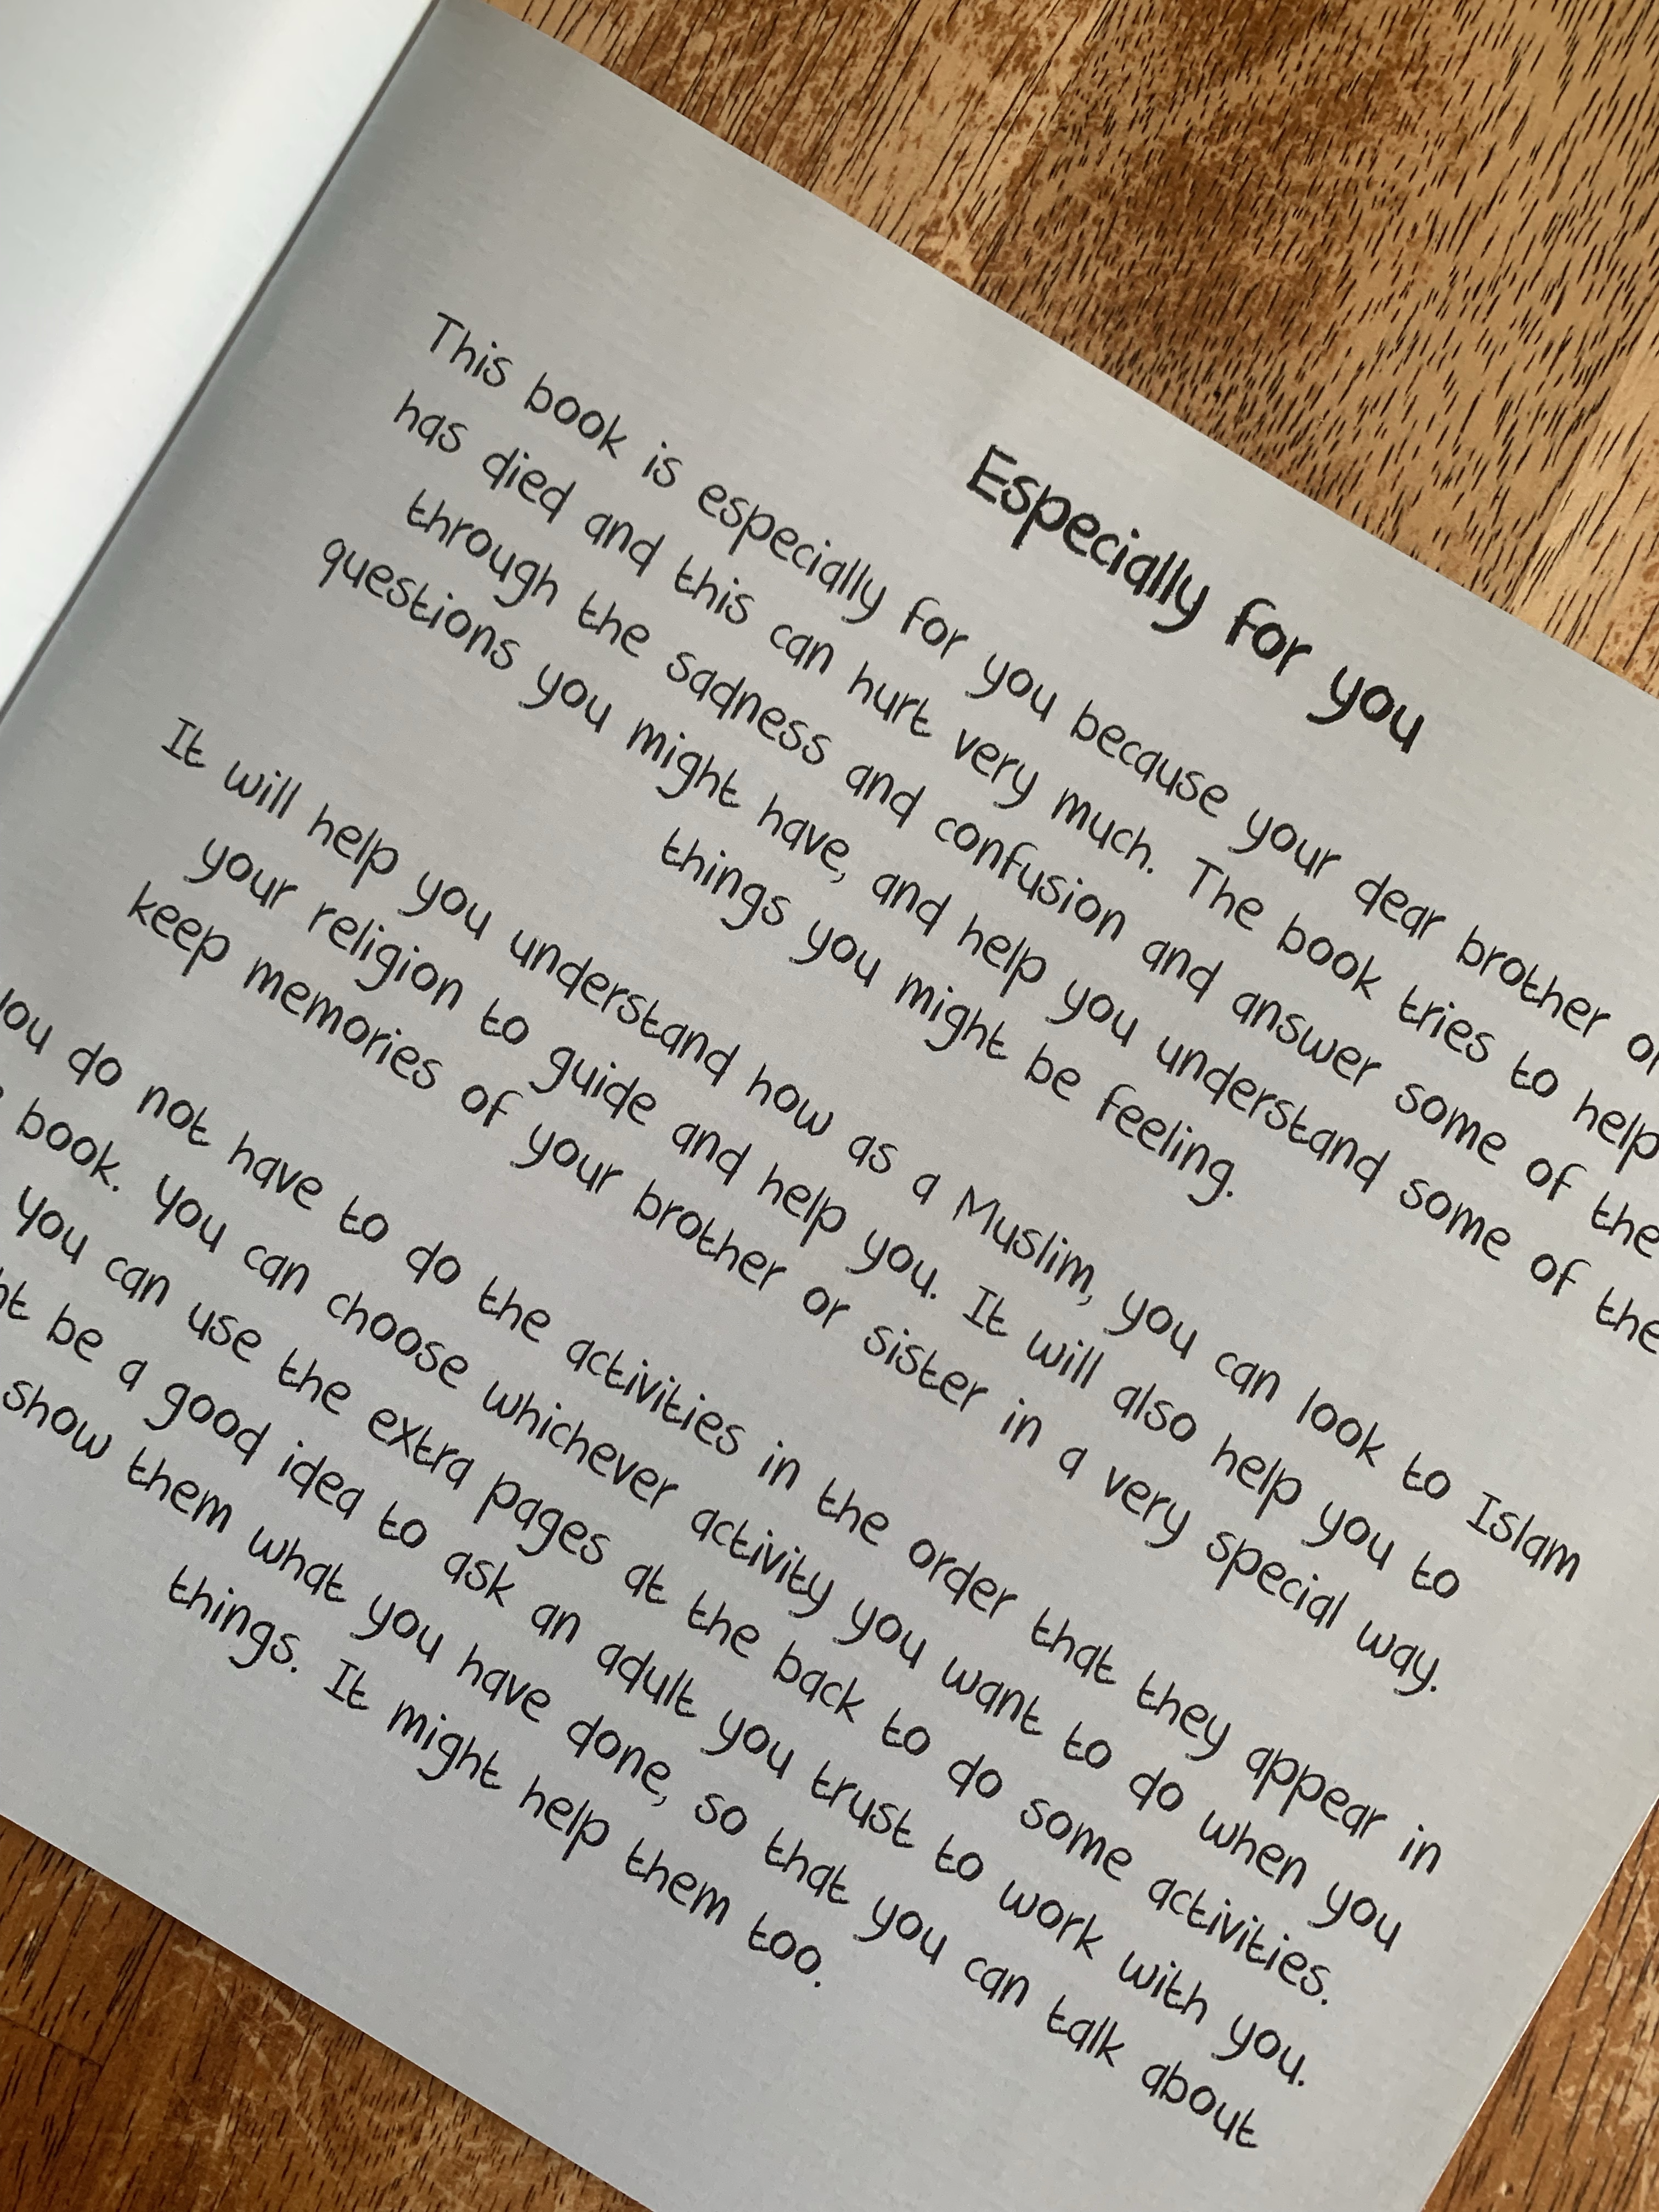 Especially for you
This book is especially for you because your dear brother or
has died and this can hurt very much. The book tries to help
through the sadness and confusion and answer some of the
questions you might have, and help you understand some of the
things you might be feeling.
It will help you understand how as a Muslim, you can look to Islam
your religion to guide and help you. It will also help you to
keep memories of your brother or sister in a very special way.
you do not have to do the activities in the order that they appear in
book. You can choose whichever activity you want to do when you
You can use the extra pages at the back to do some activities.
be a good idea to ask an adult you trust to work with you.
show them what you have done, so that you can talk about
things. It might help them too.